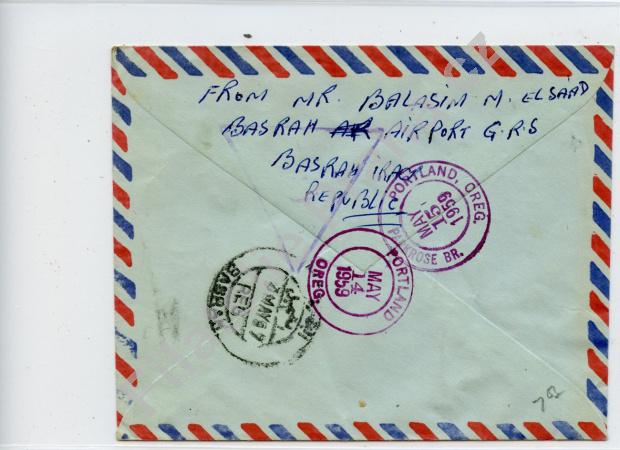 FROM MR. BALASIM M. ELSAAD
BASRAH AIRPORT G.R.S
BASRAH IRAQ
REPUBLIC
PORTLAND, OREG.
MAY
15
1959
PARKROSE BR.
PORTLAND
MAY
14
1959
OREG.
BASRAH